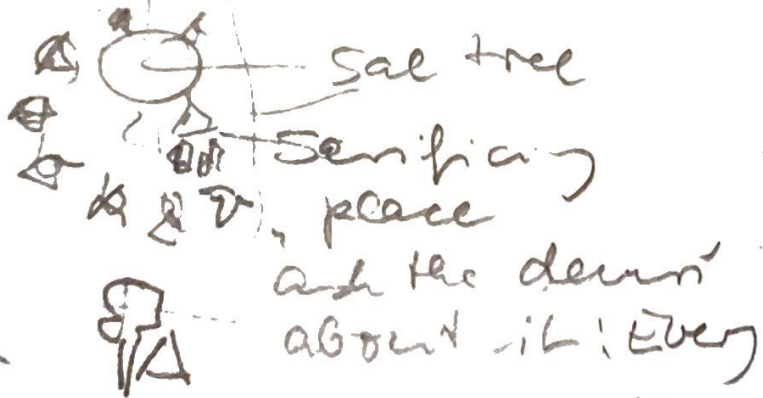 Sal tree
Sacrificing
place
and the
about it: Every